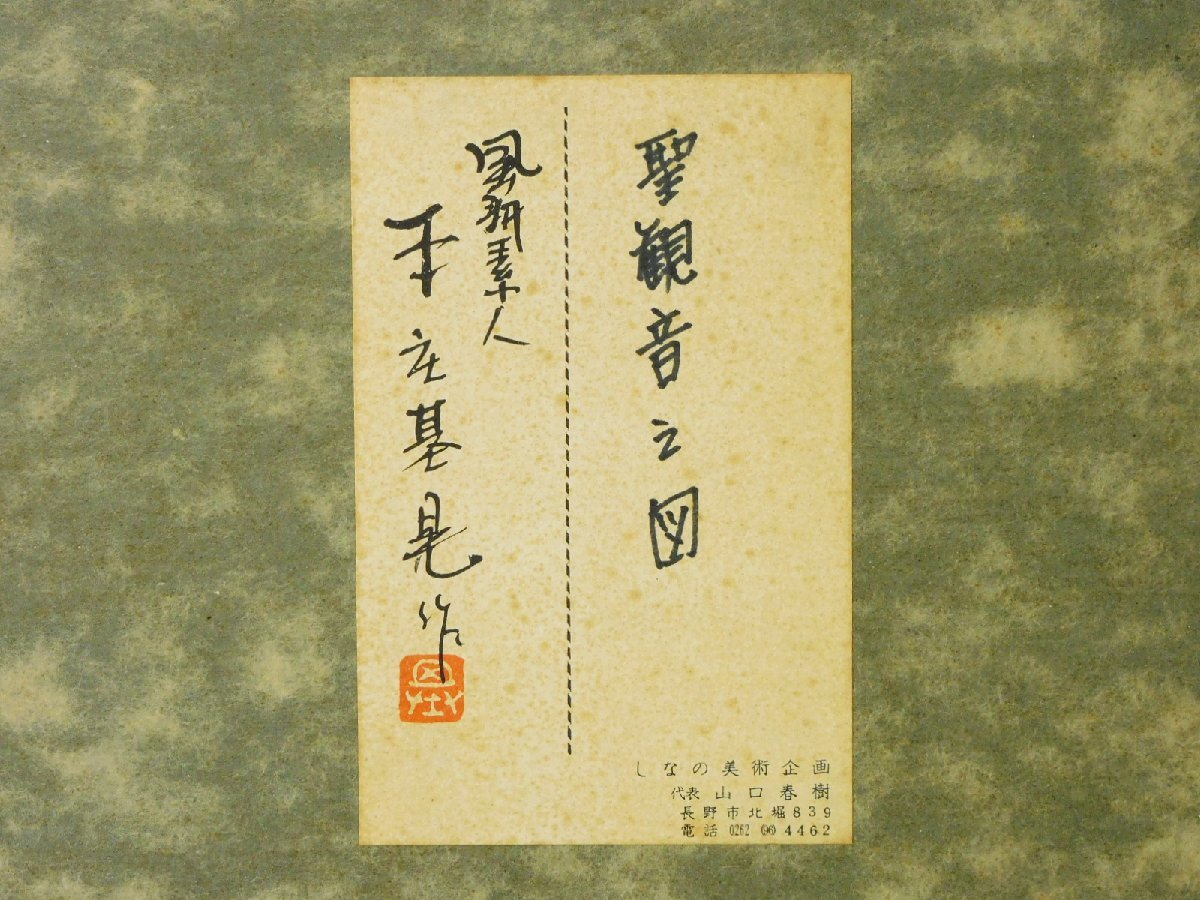 聖観音之図
風騒素人
本庄基晃作
しなの美術企画
代表 山口春樹
長野市北堀839
電話 0262 (96) 4462